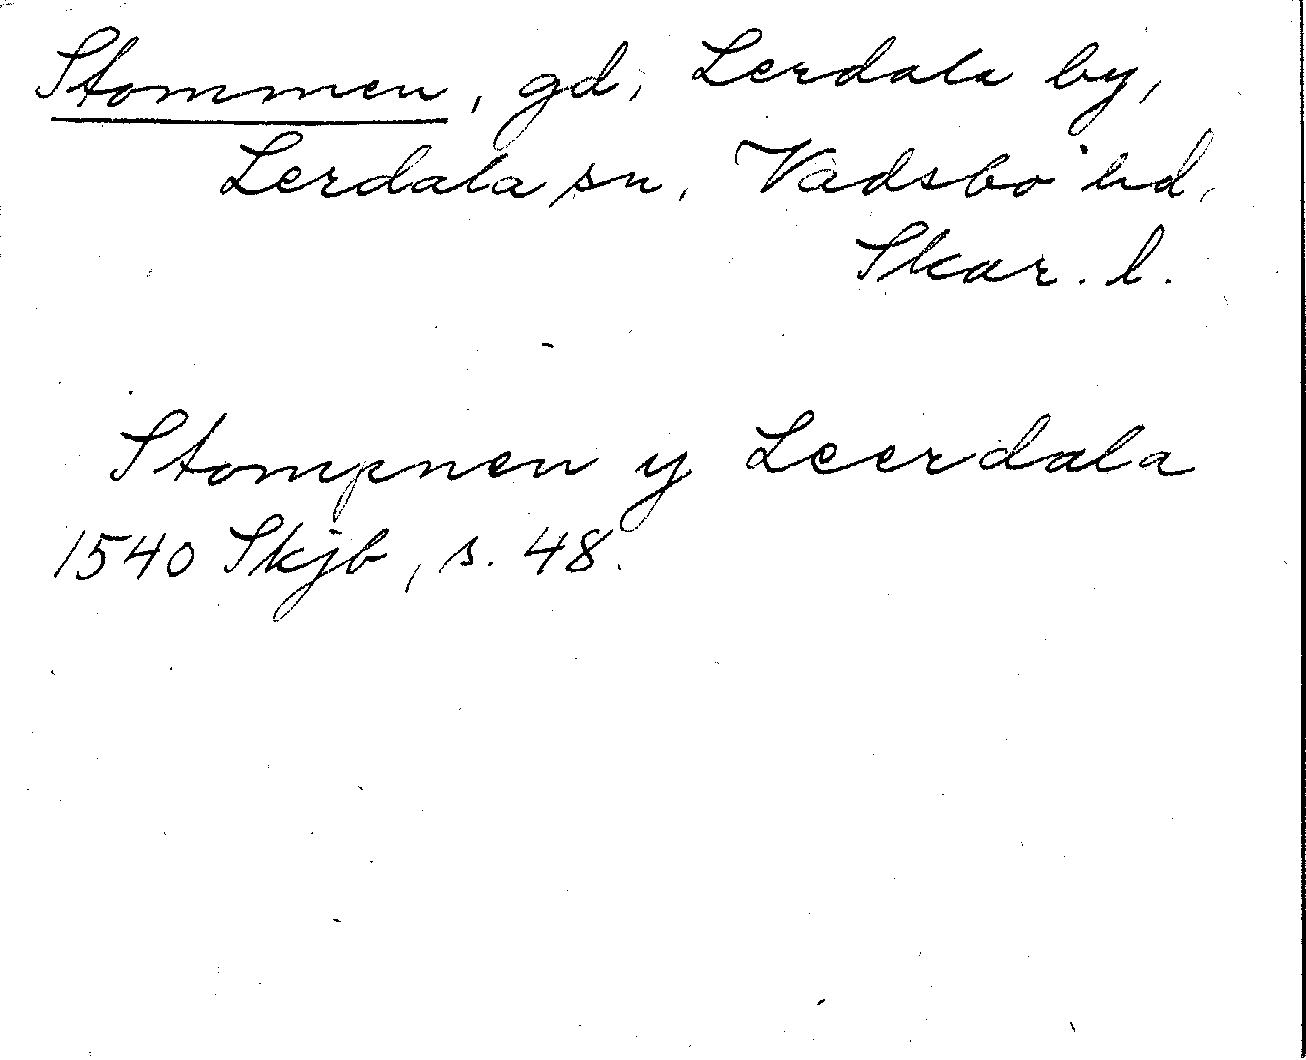 Stommen, gd, Lerdala by,
Lerdala sn, Vadsbo hd,
Skar. l.
Stompnen y Leerdala
1540 Skjb, s. 48.